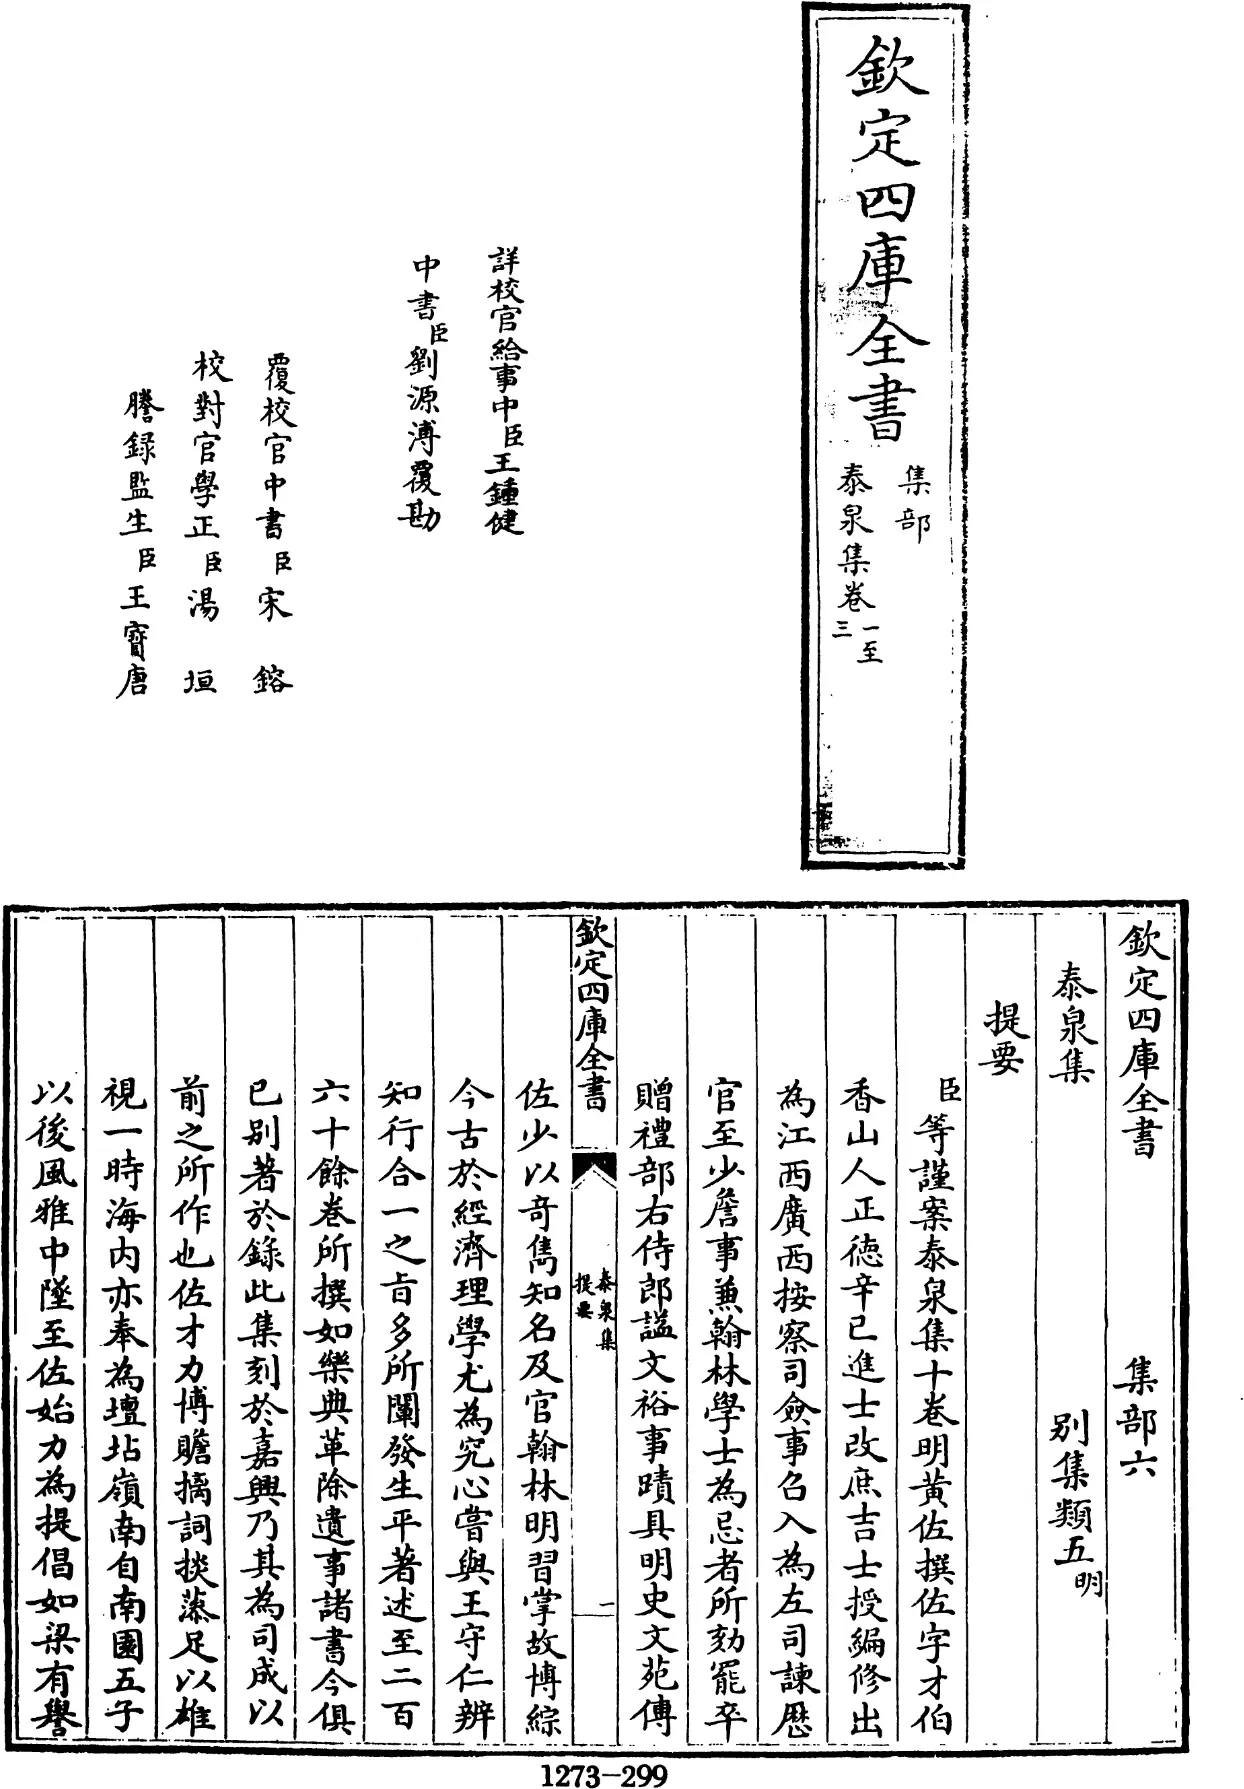 欽定四庫全書
集部
泰泉集卷一至三
詳校官給事中臣王鍾健
中書臣劉源溥覆勘
覆校官中書臣宋鎔
校對官學正臣湯垣
謄録監生臣王寳唐
欽定四庫全書 集部六
泰泉集 别集類五明
提要
臣等謹案泰泉集十卷明黄佐撰佐字才伯
香山人正徳辛巳進士改庶吉士授編修出
為江西廣西按察司僉事召入為左司諫歴
官至少詹事兼翰林學士為忌者所劾罷卒
贈禮部右侍郎諡文裕事蹟具明史文苑傳
欽定四庫全書
泰泉集
提要
一
佐少以竒雋知名及官翰林明習掌故博綜
今古於經濟理學尤為究心嘗與王守仁辨
知行合一之㫖多所闡發生平著述至二百
六十餘卷所撰如樂典革除遺事諸書今俱
已别著於錄此集刻於嘉興乃其為司成以
前之所作也佐才力博贍摛詞掞藻足以雄
視一時海内亦奉為壇坫嶺南自南園五子
以後風雅中墜至佐始力為提倡如梁有譽
1273-299